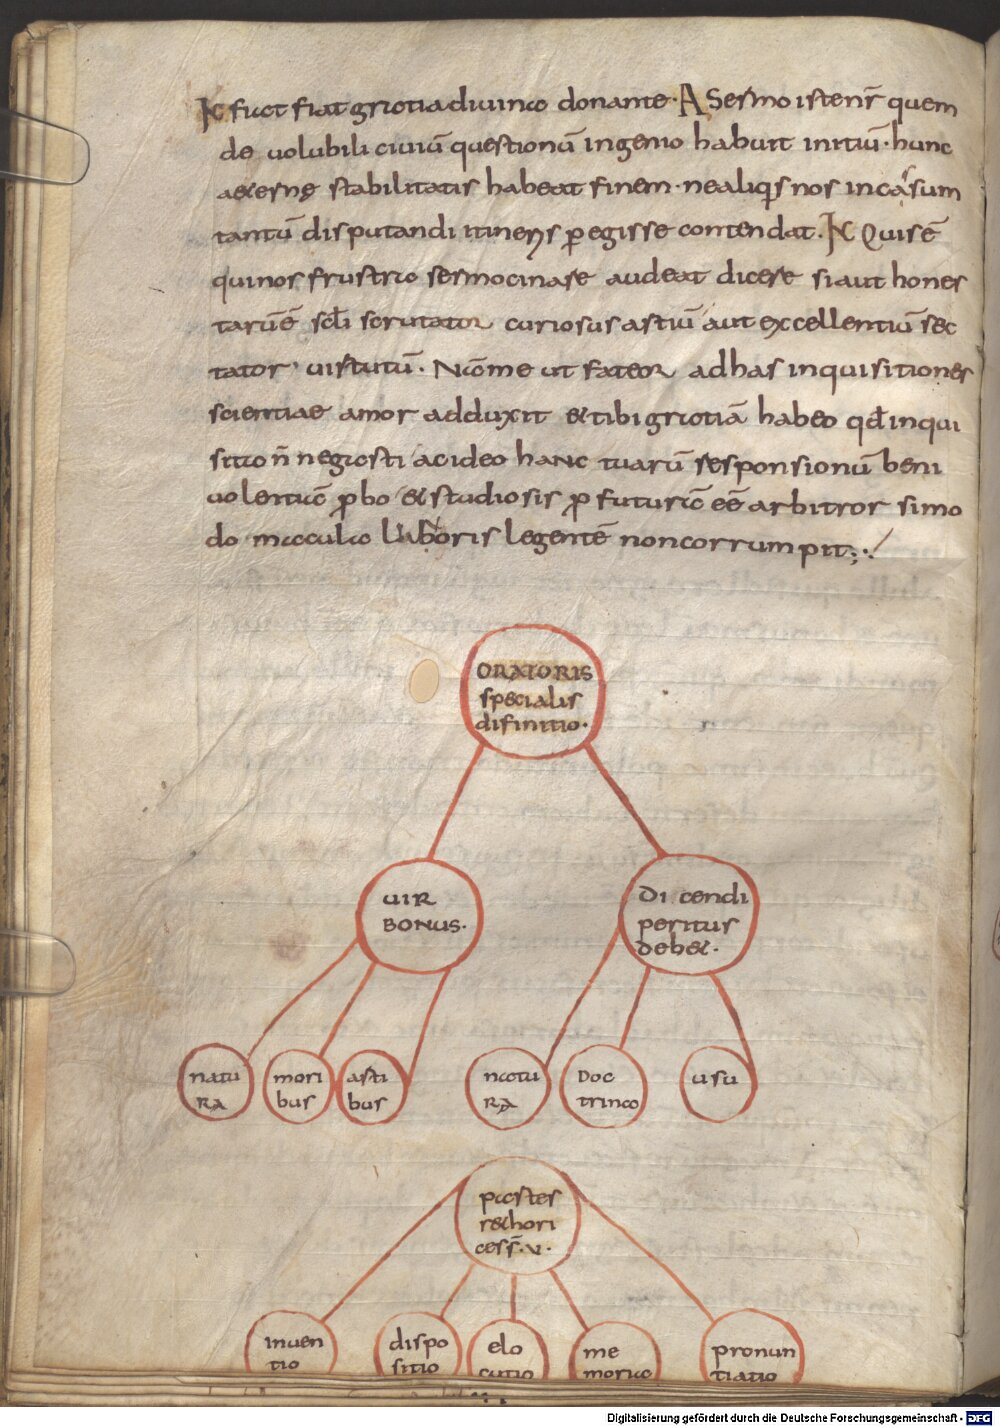 K fiat fiat gratia diuina donante. A Sermo iste nr̄ quem
de uolubili ciuiū questionū ingenio habuit initiū. hunc
aeterne stabilitatis habeat finem. ne aliqis nos incassum
tantū disputandi itineris ꝑegisse contendat. K Quis ē
qui nos frustra sermocinare audeat dicere si aut hones
tarū ē scl̄i scrutator curiosus artiū aut excellentiū sec
tator uirtutū. Nā me ut fateor ad has inquisitiones
scientiae amor adduxit & tibi gratiā habeo qđ inqui
sitio n̄ negasti ac ideo hanc tuarū responsionū beni
uolentiā ꝓbo & studiosis ꝓfuturā eē arbitror si mo
do macula laboris legentē non corrumpit;
ORATORIS
specialis
difinitio.
UIR
BONUS.
Dicendi
peritus
deb&.
natu
RA
mori
bus
arti
bus
natu
RA
DOC
trina
usu
partes
r&hori
ce s̄. v.
inuen
tio
dispo
sitio
elo
cutio
me
moria
pronun
tiatio
Digitalisierung gefördert durch die Deutsche Forschungsgemeinschaft - DFG